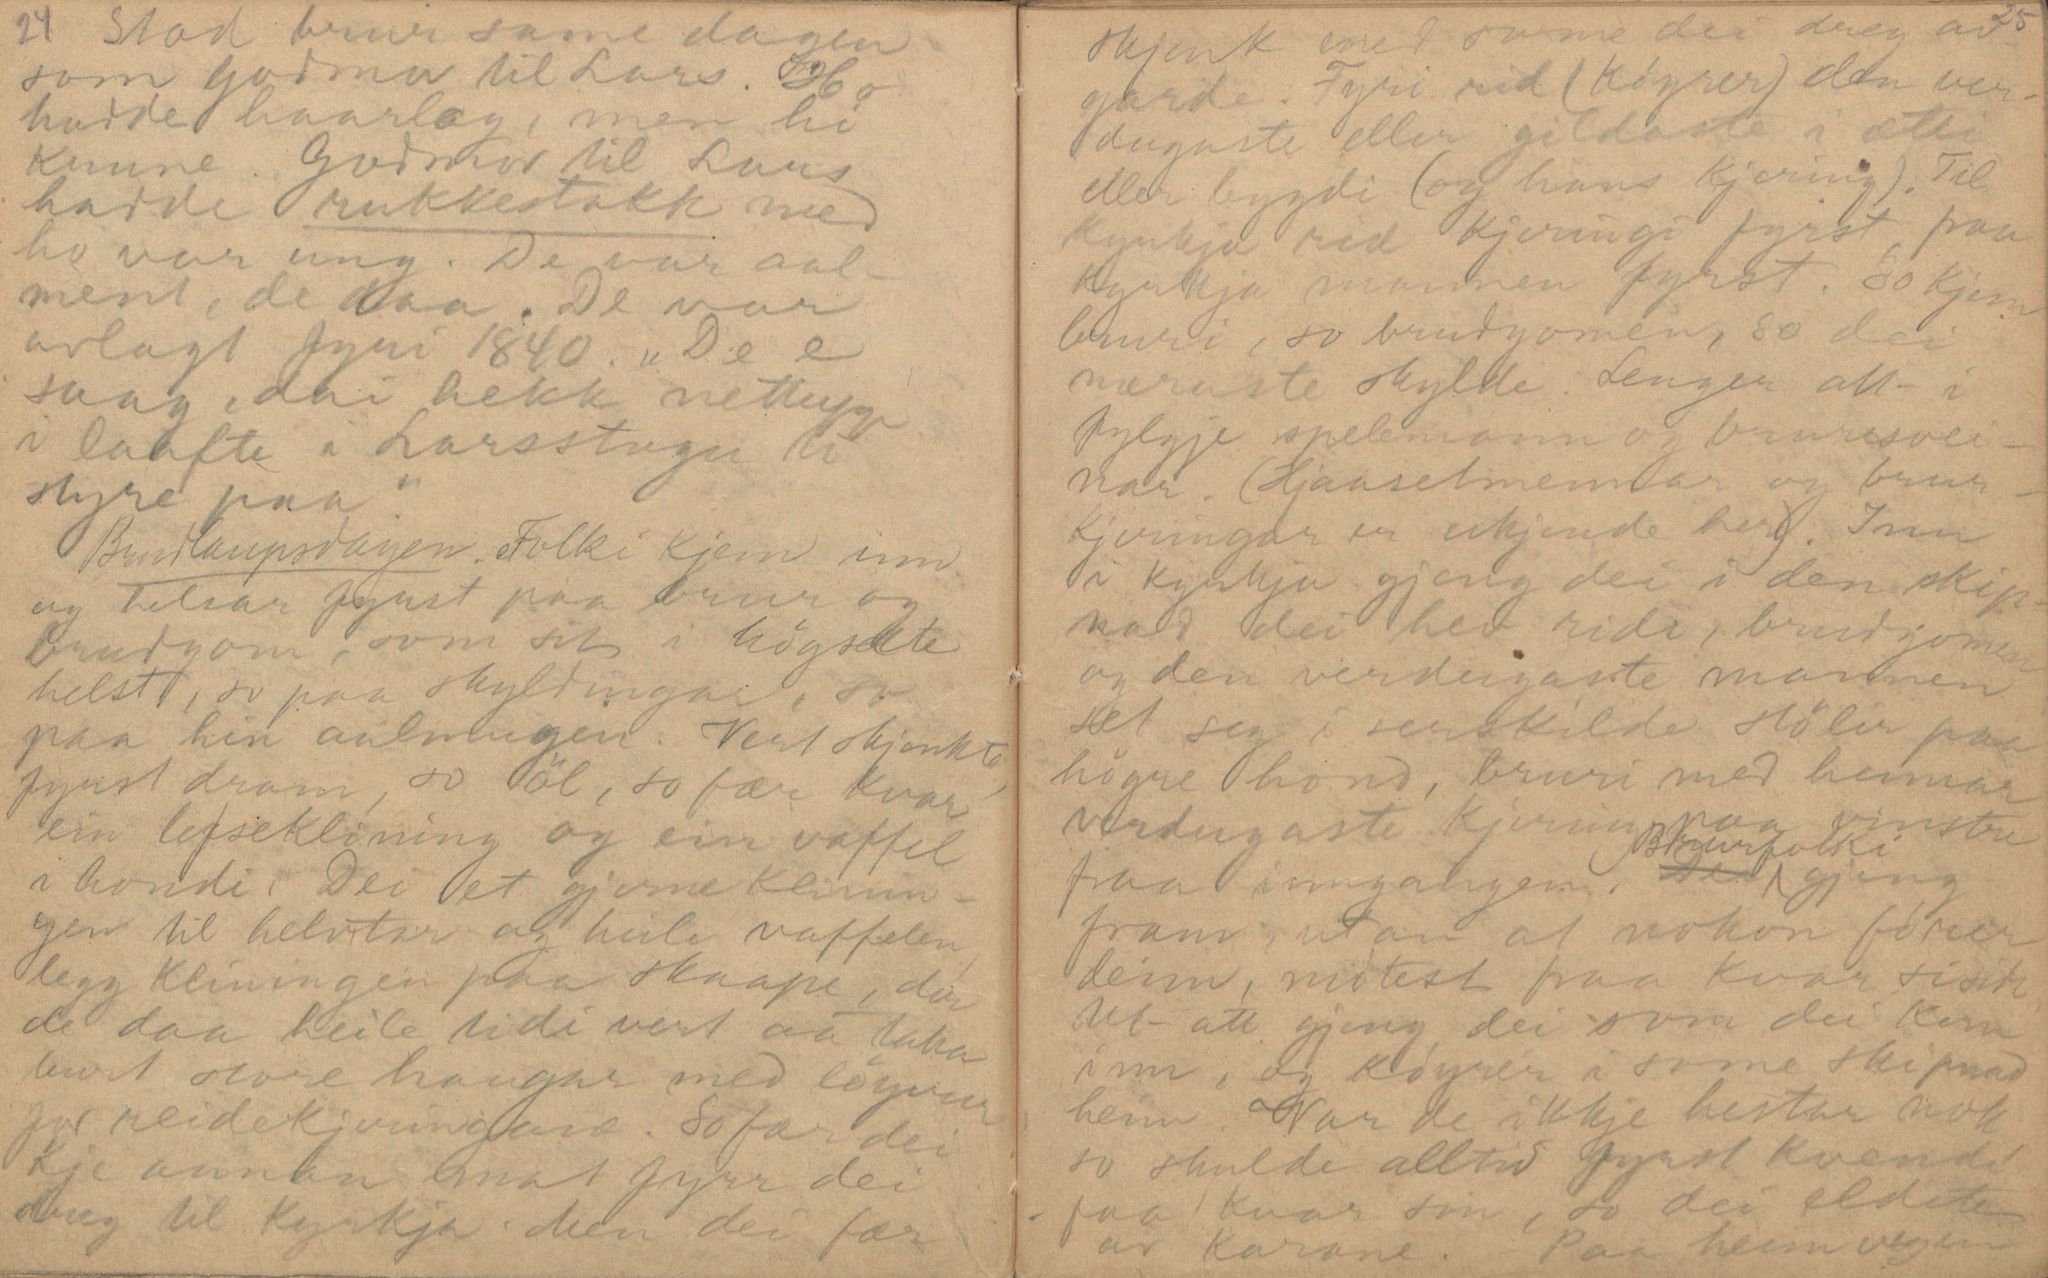 24 Stod brur same dagen
som Godmor til Lars. Ho
hadde haarlag, men hi
krune. Godmor til Lars
hadde rukkestakk med
ho var ung. De var aal-
ment, de daa. De var
avlagt fyri 1840. "De e
snag, dai hekk nettupp
i laafte i Larsstugu ti
skyre paa".
Brudlaupsdagen. Folki kjem inn
og helsar fyrst paa brur og
brudgom, som sit i högsæte
helst, so paa skyldingar, so
paa hin aalmugen. Vert skjenkta,
fyrst dram, so öl, so fær kvar
ein lefseklining og ein vaffel
i hondi. Dei et gjerne klinin-
gen til helvtar og heile vaffelen,
legg kliningen paa skaape, der
de daa heile tidi vert aa taka
burt store haugar med löyvur
for reidekjeringane. So fær dei
kje annan mat fyrr dei
dreg til kyrkja. Men dei fær
25
skjenk med same dei dreg av
garde. Fyri rid (köyrer) den ver-
dugaste eller gildaste i ætti
eller bygdi (og hans kjering). Til
kyrkja rid kjeringi fyrst, paa
kyrkja mannen fyrst. So kjem
bruri, so brudgomen, so dei
næraste skylde. Lenger att i
fylgje spelemann og brursvei-
nar. (Hjaasetmennar og brur-
kjeringar er ukjende her). Inn
i kyrkja gjeng dei i den skip-
nad dei hev ride, brudgomen
og den verdugaste mannen
set seg i serskilde stölar paa
högre hond, bruri med hennar
verdugaste kjering paa vinstre
fraa inngangen. Brurfolki gjeng
fram, utan at nokon förer
deim, mötest paa kvar si side.
Ut-att gjeng dei som dei kom
inn, og köyrer i same skipnad
heim. Var de ikkje hestar nok
so skulde alltid fyrst kvendi
faa kvar sin, so dei eldste
av karane. - Paa heimvegen